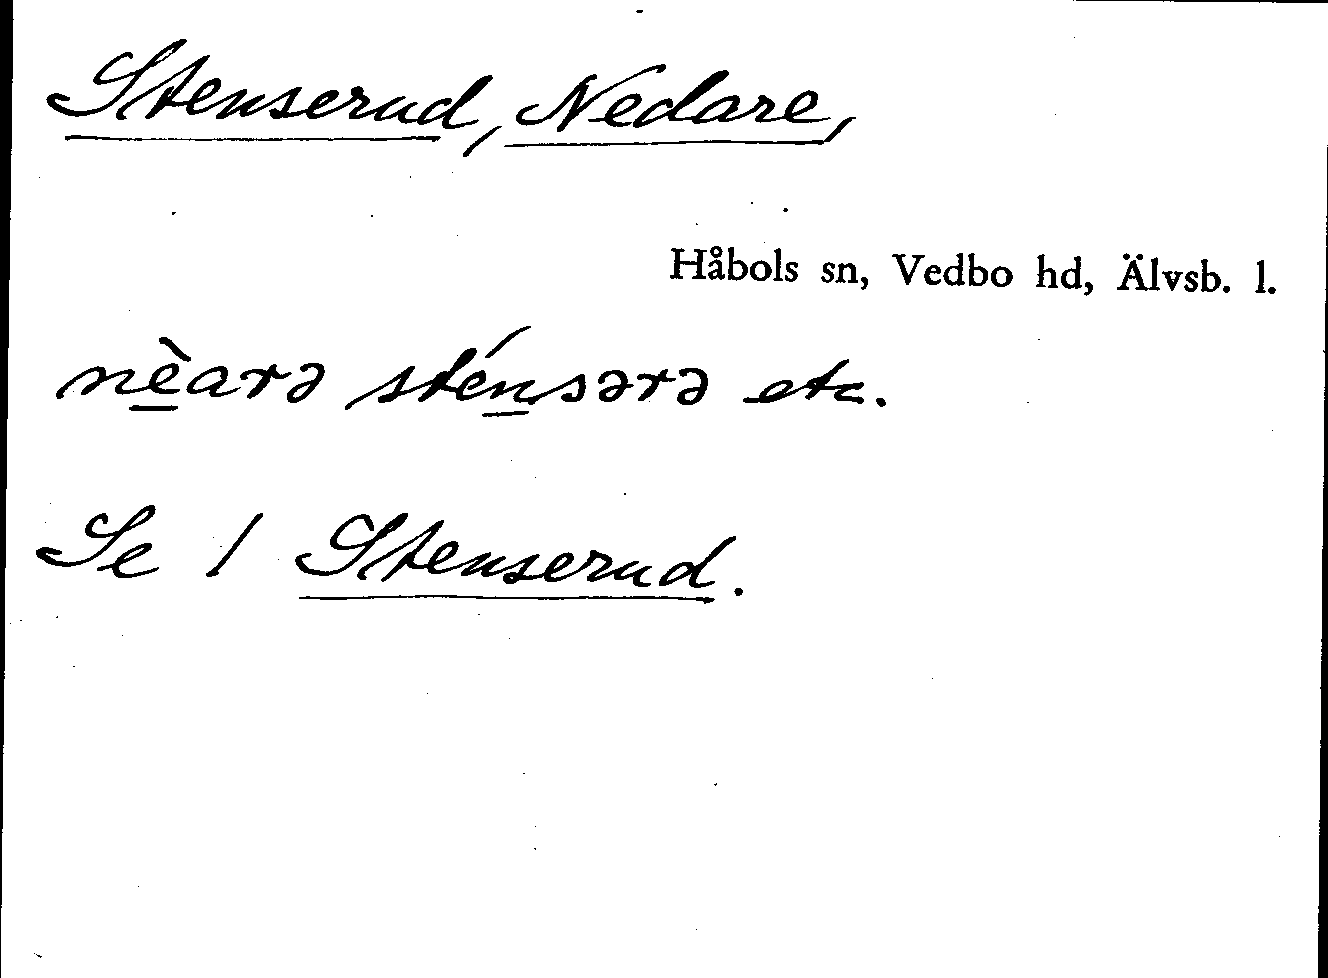 Stenserud, Nedare,
Håbols sn, Vedbo hd, Älvsb. l.
nè̱arə sténsərə etc.
Se 1 Stenserud.